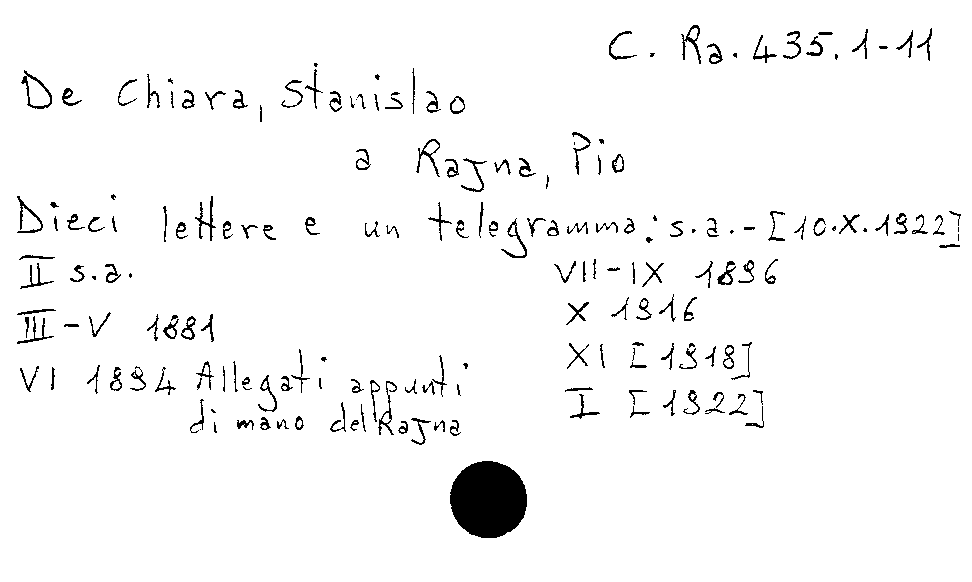 C. Ra. 435. 1-11
De Chiara, Stanislao
a Rajna, Pio
Dieci lettere e un telegramma: s.a. - [10.X.1922]
II s.a.
III - V 1881
VI 1894 Allegati appunti
di mano del Rajna
VII - IX 1896
X 1916
XI [1918]
I [1922]